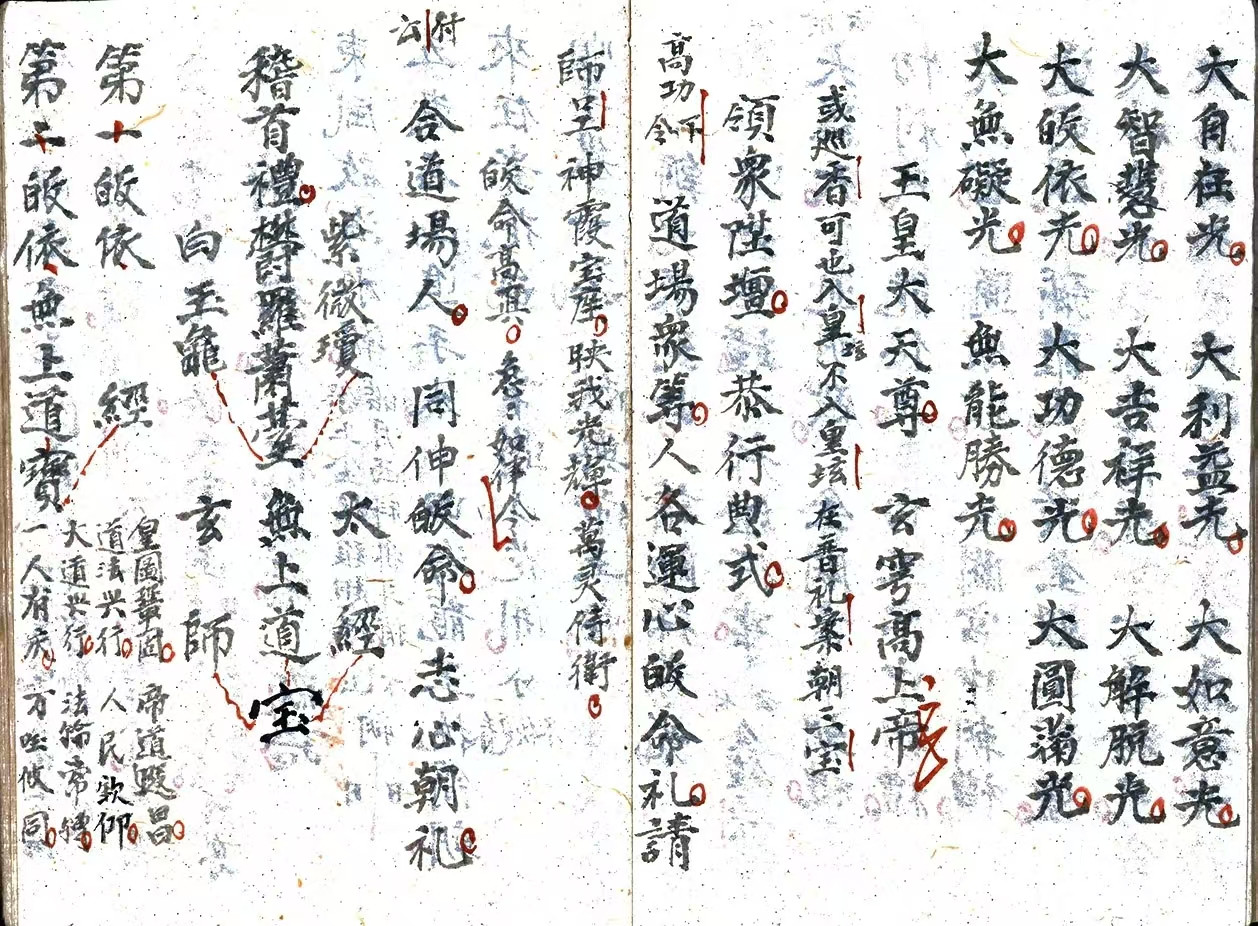 大自在光 大利益光 大如意光
大智慧光 大吉祥光 大解脱光
大皈依光 大功德光 大圓滿光
大無礙光 無能勝光
玉皇大天尊 玄穹高上帝
或廵香可也入皇坛不入皇坛 在香礼案朝三宝
領衆陞壇 恭行典式
高功下令 道場衆等人各運心皈命礼請
師呈神霞宝座映我光輝萬灵侍衛
皈命高真 急〻如律令
付云 合道場人 同伸皈命 志心朝礼
紫微瓊 太 經
稽首禮欝羅蕭臺 無上道宝
白玉龜 玄 師
皇圖鞏固 帝道遐昌
第一皈依 經 道法兴行 人民欽仰
大道兴行 法輪常轉
第二皈依無上道寶 一人有庆 万 攸同